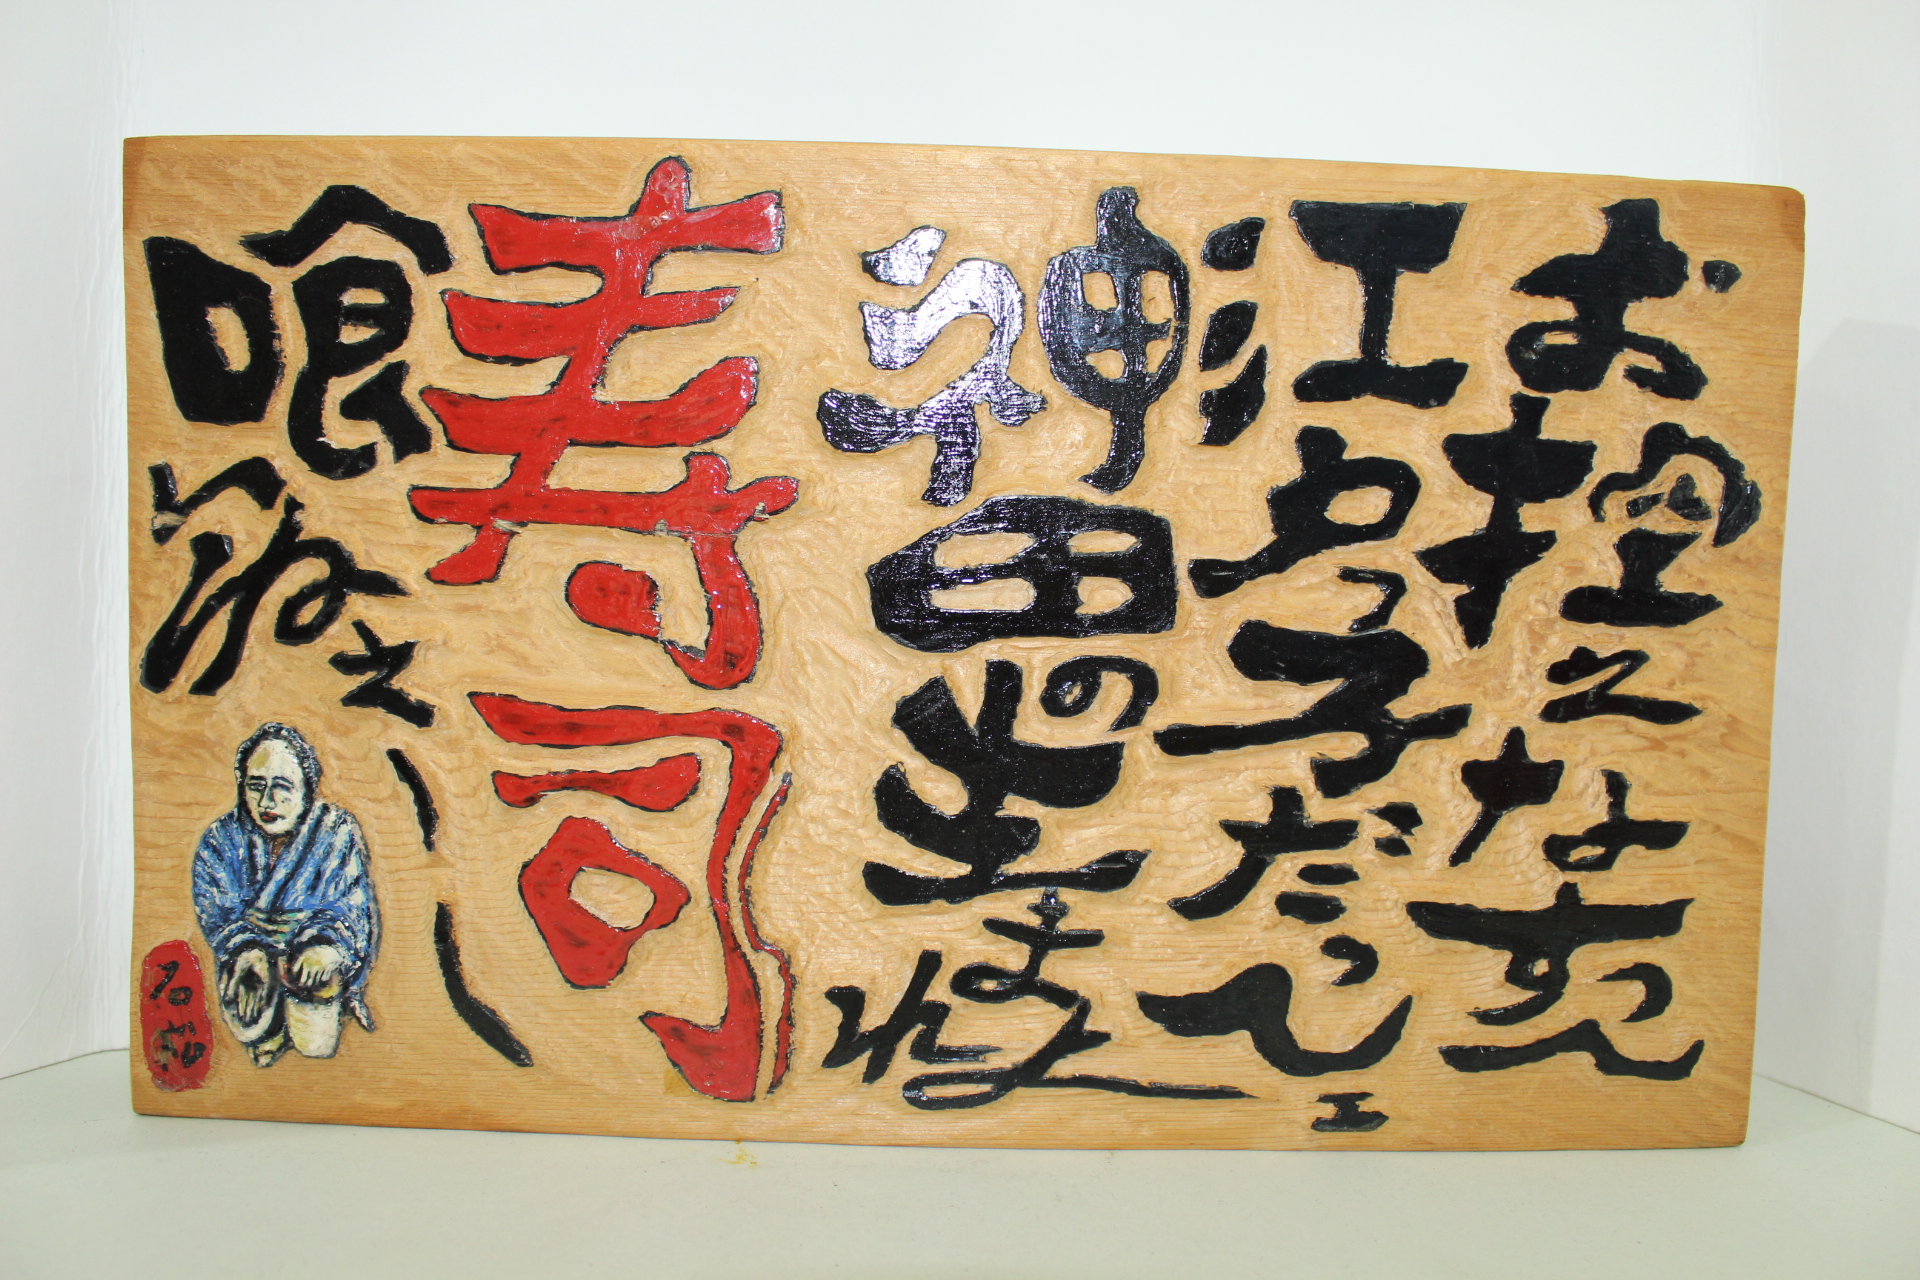 お控えなすって
江戸っ子だってエ
神田の生まれよ
寿司
喰ねえー
石松